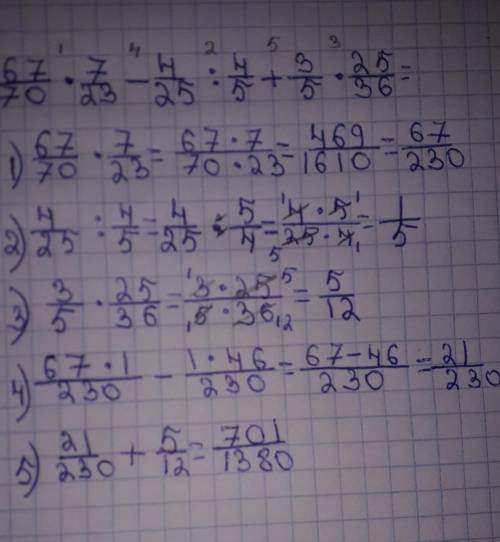 67/70 · 7/23 - 4/25 : 4/5 + 3/5 · 25/36 =
1) 67/70 · 7/23 = 67·7/70·23 = 469/1610 = 67/230
2) 4/25 : 4/5 = 4/25 · 5/4 = 4·5/25·4 = 1/5
3) 3/5 · 25/36 = 3·25/5·36 = 5/12
4) 67·1/230 - 1·46/230 = 67-46/230 = 21/230
5) 21/230 + 5/12 = 701/1380